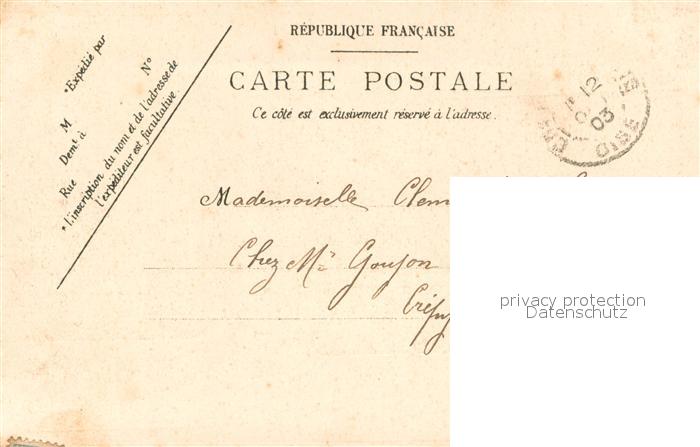 RÉPUBLIQUE FRANÇAISE
CARTE POSTALE
Ce côté est exclusivement réservé à l'adresse.
*Expédié par
N°
M
Demt à
Rue
*l'inscription du nom et de l'adresse de
l'expéditeur est facultative.
12
03
OISE
Mademoiselle Clem
Chez Mr Goujon
Crépy
privacy protection
Datenschutz